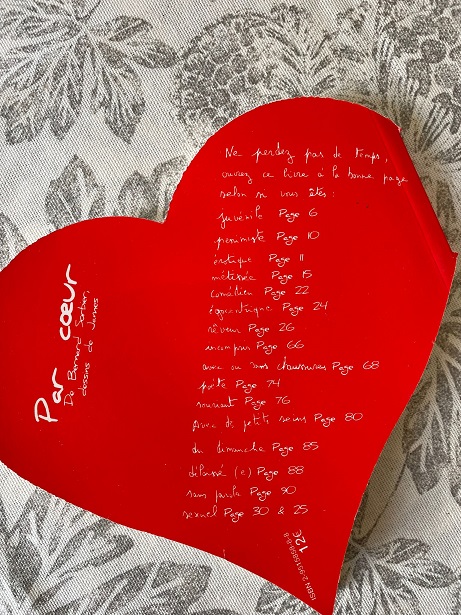 Ne perdez pas de temps,
ouvrez ce livre à la bonne page
selon si vous êtes :
juvénile Page 6
pessimiste Page 10
érotique Page 11
métissée Page 15
comédien Page 22
égocentrique Page 24
rêveur Page 26
incompris Page 66
avec ou sans chaussures Page 68
poète Page 74
souriant Page 76
Avec de petits seins Page 80
du dimanche Page 85
délaissé (e) Page 88
sans parole Page 90
sexuel Page 30 & 25
Par cœur
De Bernard
dessins de James
12€